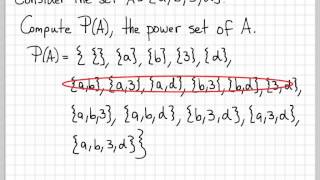 Consider the set A = {a, b, 3, d}.
Compute P(A), the power set of A.
P(A) = { {}, {a}, {b}, {3}, {d},
{a,b}, {a,3}, {a,d}, {b,3}, {b,d}, {3,d},
{a,b,3}, {a,b,d}, {b,3,d}, {a,3,d},
{a,b,3,d}}